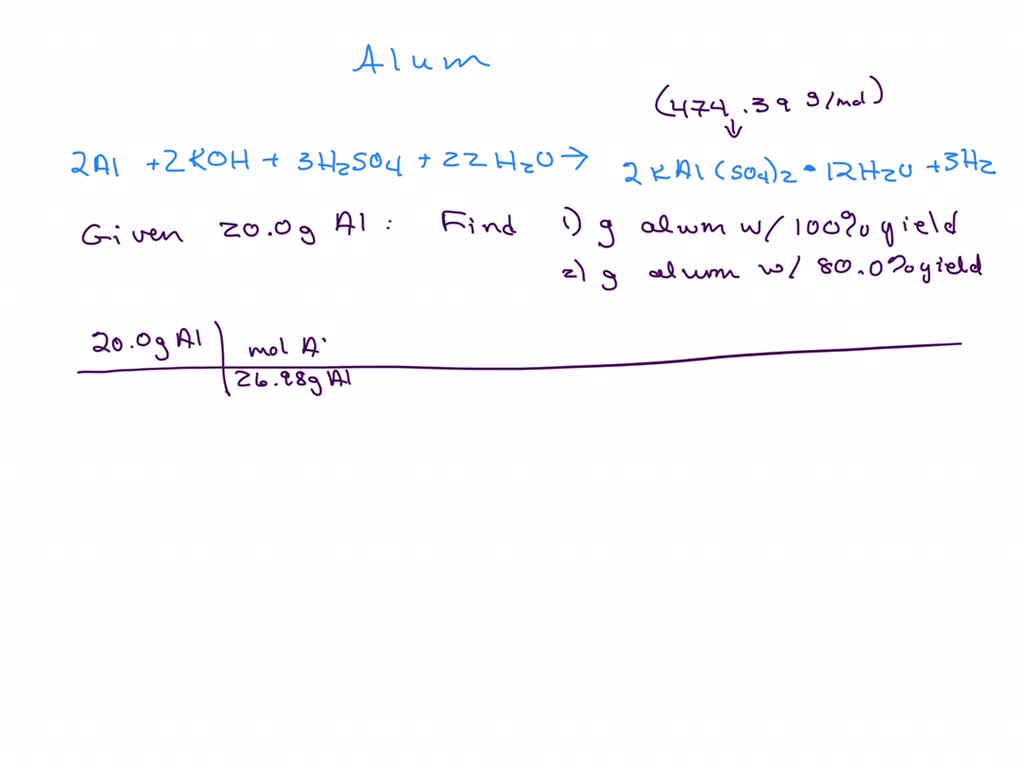 Alum
(474.39 g/mol)
↓
2Al + 2KOH + 3H₂SO₄ + 22H₂O → 2KAl(SO₄)₂ • 12H₂O + 3H₂
Given 20.0g Al : Find 1) g alum w/ 100% yield
2) g alum w/ 80.0% yield
20.0g Al | mol A
26.98g Al